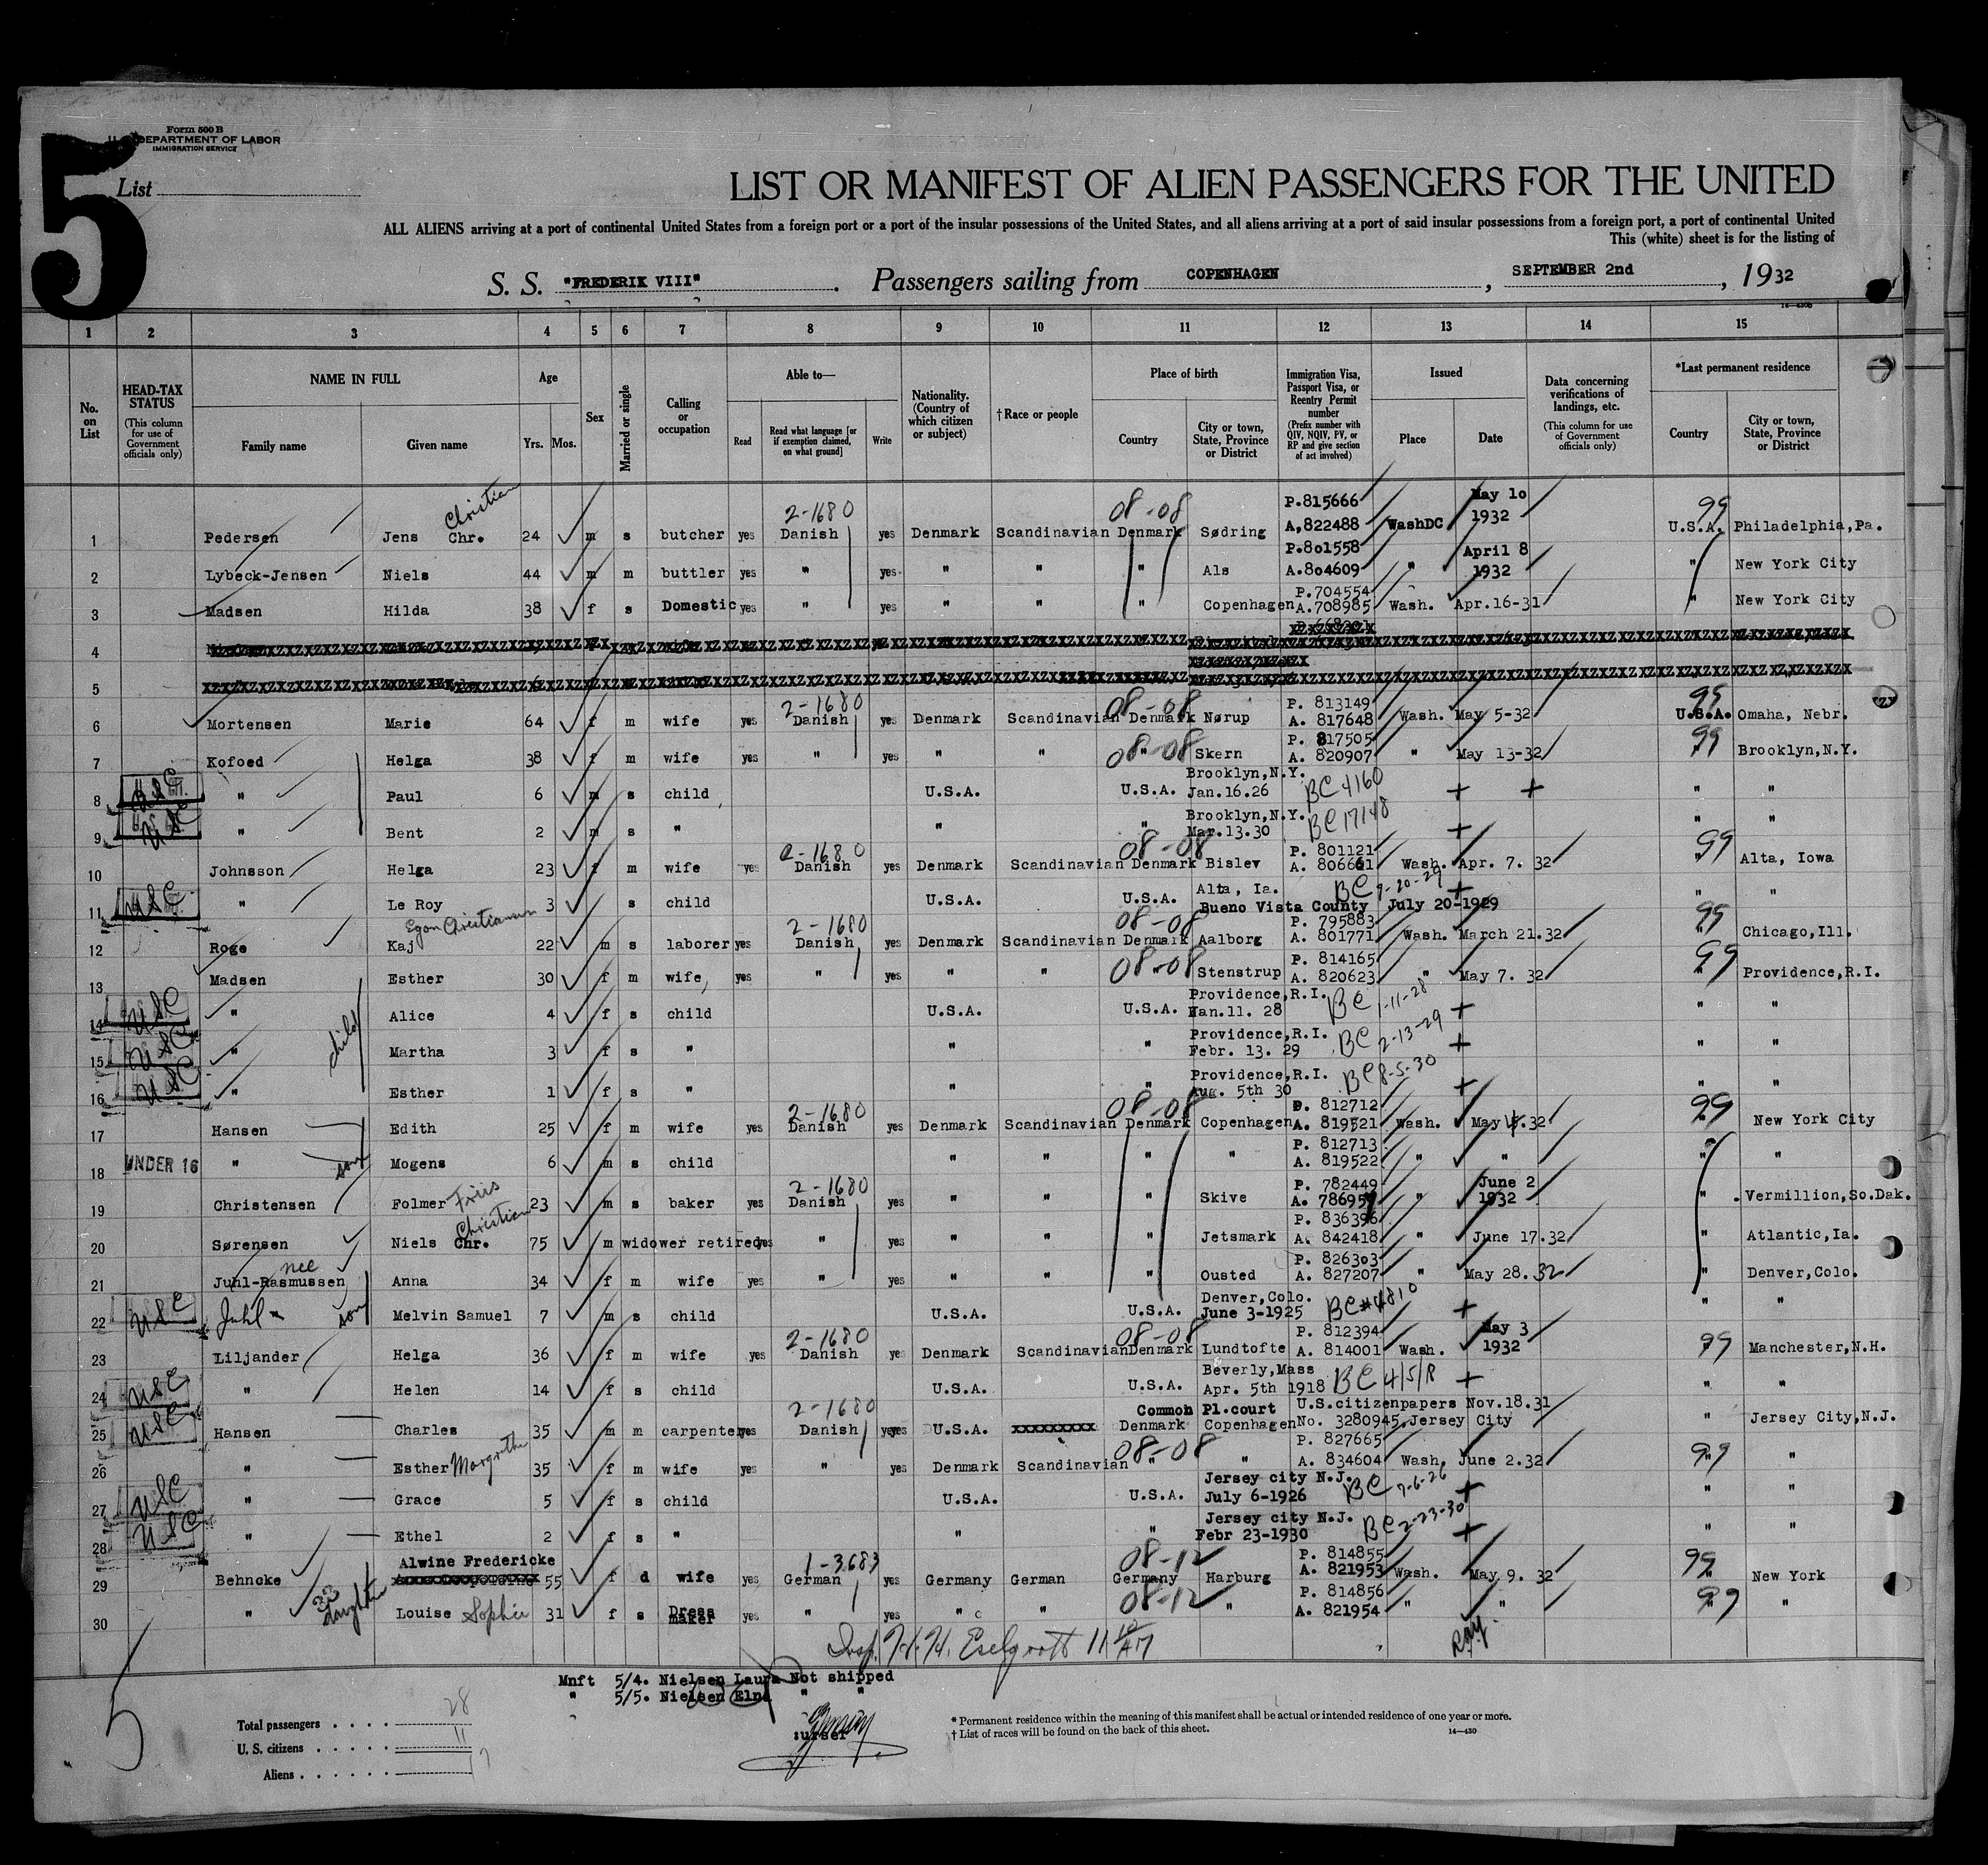 5
Form 500 B
U. S. DEPARTMENT OF LABOR
IMMIGRATION SERVICE
List
LIST OR MANIFEST OF ALIEN PASSENGERS FOR THE UNITED
ALL ALIENS arriving at a port of continental United States from a foreign port or a port of the insular possessions of the United States, and all aliens arriving at a port of said insular possessions from a foreign port, a port of continental United
This (white) sheet is for the listing of
S. S. "FREDERIK VIII" . Passengers sailing from COPENHAGEN , SEPTEMBER 2nd , 1932
1 2 3 4 5 6 7 8 9 10 11 12 13 14 15
No. on List
HEAD-TAX STATUS (This column for use of Government officials only)
NAME IN FULL
Family name Given name
Age
Yrs. Mos.
Sex
Married or single
Calling or occupation
Able to—
Read Read what language [or if exemption claimed, on what ground] Write
Nationality. (Country of which citizen or subject)
†Race or people
Place of birth
Country City or town, State, Province or District
Immigration Visa, Passport Visa, or Reentry Permit number (Prefix number with QIV, NQIV, PV, or RP and give section of act involved)
Issued
Place Date
Data concerning verifications of landings, etc. (This column for use of Government officials only)
*Last permanent residence
Country City or town, State, Province or District
Christian 2-1680 08-08 P.815666 May 10 99
1 Pedersen Jens Chr. 24 m s butcher yes Danish yes Denmark Scandinavian Denmark Sødring A,822488 WashDC 1932 U.S.A. Philadelphia,Pa.
P.801558 April 8
2 Lybeck-Jensen Niels 44 m m buttler yes " yes " " " Als A.804609 " 1932 " New York City
P.704554
3 Madsen Hilda 38 f s Domestic yes " yes " " " Copenhagen A.708985 Wash. Apr.16-31 " New York City
4
5
2-1680 08-08 P. 813149 99
6 Mortensen Marie 64 f m wife yes Danish yes Denmark Scandinavian Denmark Nørup A. 817648 Wash. May 5-32 U.S.A. Omaha, Nebr.
P. 817505
7 Kofoed Helga 38 f m wife yes " yes " " 08-08 Skern A. 820907 " May 13-32 99 Brooklyn,N.Y.
Brooklyn,N.Y.
8 USC " Paul 6 m s child U.S.A. U.S.A. Jan.16.26 BC 4160 + + " "
Brooklyn,N.Y.
9 USC " Bent 2 m s " " " Mar.13.30 BC 17148 + " "
2-1680 08-08 P. 801121 99
10 Johnsson Helga 23 f m wife yes Danish yes Denmark Scandinavian Denmark Bislev A. 806661 Wash. Apr. 7. 32 " Alta, Iowa
Alta, Ia. BC 7-20-29 +
11 USC " Le Roy 3 s child U.S.A. U.S.A. Bueno Vista County July 20-1929 " "
Egon Christiansen 2-1680 08-08 P. 795883 99
12 Roge Kaj 22 m s laborer yes Danish yes Denmark Scandinavian Denmark Aalborg A. 801771 Wash. March 21.32 " Chicago,Ill.
P. 814165
13 Madsen Esther 30 f m wife, yes " yes " " 08-08 Stenstrup A. 820623 " May 7. 32 99 Providence,R.I.
Providence,R.I.
14 USC " Alice 4 f s child U.S.A. U.S.A. Jan.11. 28 BC 1-11-28 + " "
Providence,R.I.
15 USC " child Martha 3 f s " " " Febr. 13. 29 BC 2-13-29 + " "
Providence,R.I.
16 USC " Esther 1 f s " " " Aug. 5th 30 BC 8-5-30 + " "
2-1680 08-08 P. 812712 99
17 Hansen Edith 25 f m wife yes Danish yes Denmark Scandinavian Denmark Copenhagen A. 819521 Wash. May 4.32 " New York City
P. 812713
18 UNDER 16 " son Mogens 6 m s child " " " " A. 819522 " " " "
Friis 2-1680 P. 782449 June 2
19 Christensen Folmer 23 m s baker yes Danish yes " " " Skive A. 786959 " 1932 " Vermillion,So.Dak.
Christian P. 836396
20 Sørensen Niels Chr. 75 m widower retired yes " yes " " " Jetsmark A. 842418 " June 17.32 " Atlantic,Ia.
nee P. 826303
21 Juhl-Rasmussen Anna 34 f m wife yes " yes " " " Ousted A. 827207 " May 28. 32 " Denver,Colo.
Denver,Colo.
22 USC Juhl son Melvin Samuel 7 m s child U.S.A. U.S.A. June 3-1925 BC#4810 + " "
2-1680 08-08 P. 812394 May 3
23 Liljander Helga 36 f m wife yes Danish yes Denmark Scandinavian Denmark Lundtofte A. 814001 Wash. 1932 99 Manchester,N.H.
Beverly,Mass
24 USC " Helen 14 f s child U.S.A. U.S.A. Apr. 5th 1918 BC 4/5/18 + " "
2-1680 Common Pl.court U.S.citizenpapers Nov.18.31
25 USC Hansen Charles 35 m m carpenter yes Danish yes U.S.A. xxxxxxxxx Denmark Copenhagen No. 3280945.Jersey City " Jersey City,N.J.
08-08 P. 827665
26 " Esther Margrethe 35 f m wife yes " yes Denmark Scandinavian " " A. 834604 Wash. June 2.32 99 "
Jersey city N.J.
27 USC " Grace 5 f s child U.S.A. U.S.A. July 6-1926 BC 7-6-26 + " "
Jersey city N.J.
28 USC " Ethel 2 f s " " " Febr 23-1930 BC 2-23-30 + " "
Alwine Fredericke 1-3683 08-12 P. 814855 99
29 Behncke 55 f d wife yes German yes Germany German Germany Harburg A. 821953 Wash. May 9. 32 " New York
08-12 P. 814856
30 " daughter Louise Sophie 31 f s Dress maker yes " yes " " " A. 821954 " " 99 "
Insp. H.H. Eselgroth 11 10 AM Ray
Mnft 5/4. Nielsen Laura Not shipped
" 5/5. Nielsen Elna " "
5
Total passengers 28
U. S. citizens 11
Aliens 17
Purser
* Permanent residence within the meaning of this manifest shall be actual or intended residence of one year or more.
† List of races will be found on the back of this sheet.
14—430